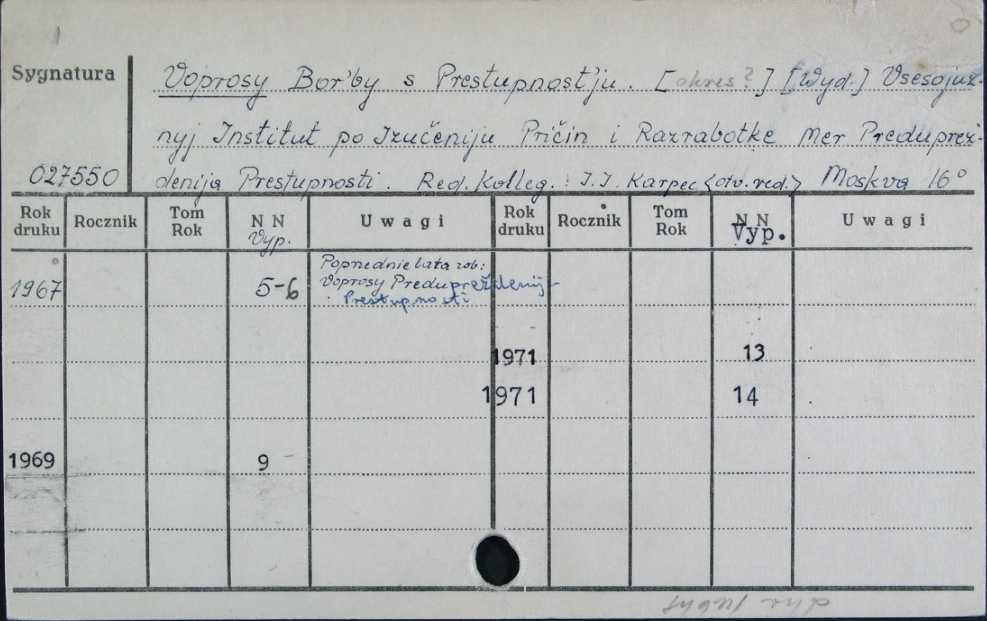 Sygnatura
Voprosy Bor'by s Prestupnost'ju. [okres?] [Wyd.] Vsesojuz-
nyj Institut po Izučeniju Pričin i Razrabotke Mer Preduprež-
027550
denija Prestupnosti. Red. Kolleg.: I.I. Karpec <otv. red.> Moskva 16°
Rok druku Rocznik Tom Rok N N Vyp. Uwagi Rok druku Rocznik Tom Rok N N Vyp. Uwagi
Poprzednie lata zob:
1967 5-6 Voprosy Predupreždenij-
Prestupnosti
1971 13
1971 14
1969 9